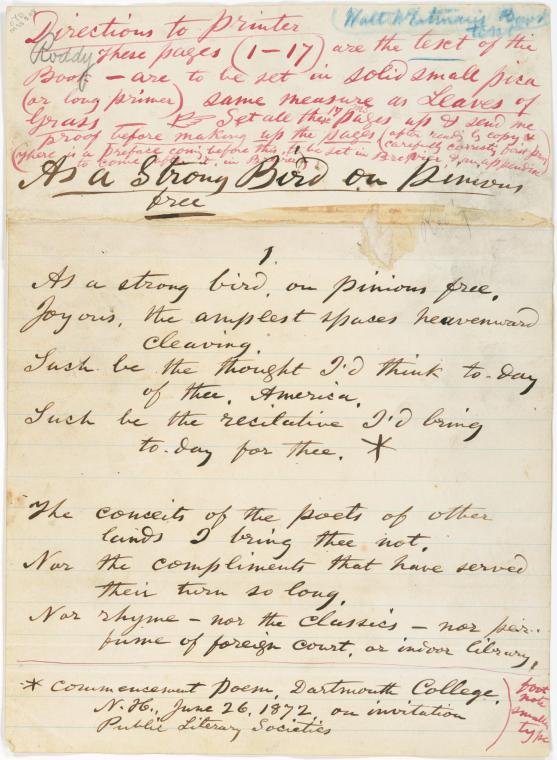 Walt Whitman's
Directions to Printer
Roddy
These pages (1-17) are the text of the
Book - are to be set in solid small pica
(or long primer) same measure as Leaves of
Grass Set all these pages up & send me
proof before making up the pages
(there is a preface before this, to be set in
As a Strong Bird on Pinions
free
1.
As a strong bird, on pinions free,
Joyous, the amplest spaces heavenward
cleaving,
Such be the thought I'd think to-day
of thee, America,
Such be the recitative I'd bring
to-day for thee. *
The conceits of the poets of other
lands I bring thee not,
Nor the compliments that have served
their turn so long,
Nor rhyme - nor the classics - nor per-
fume of foreign court, or indoor library,
* Commencement Poem, Dartmouth College,
N. H., June 26, 1872, on invitation
Public Literary Societies
foot
note
small
type